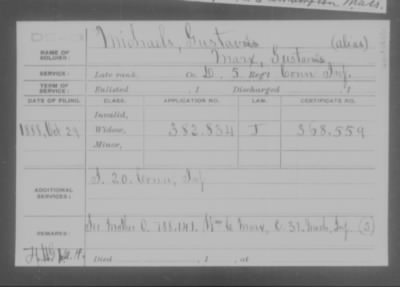 Michaels, Gustavus (alias)
NAME OF SOLDIER:
Marx, Gustavus,
SERVICE: Late rank, Co. D, 5 Reg't Conn Inf.
TERM OF SERVICE: Enlisted , 1 Discharged , 1
DATE OF FILING. CLASS. APPLICATION NO. LAW. CERTIFICATE NO.
Invalid,
1888, Oct 29 Widow, 382.834 J 368.559
Minor,
ADDITIONAL SERVICES: I. 20. Conn, Inf
REMARKS: See Mother O. 788.141. Wm C Marx, C. 37. Mass, Inf (3)
Died , 1 , at